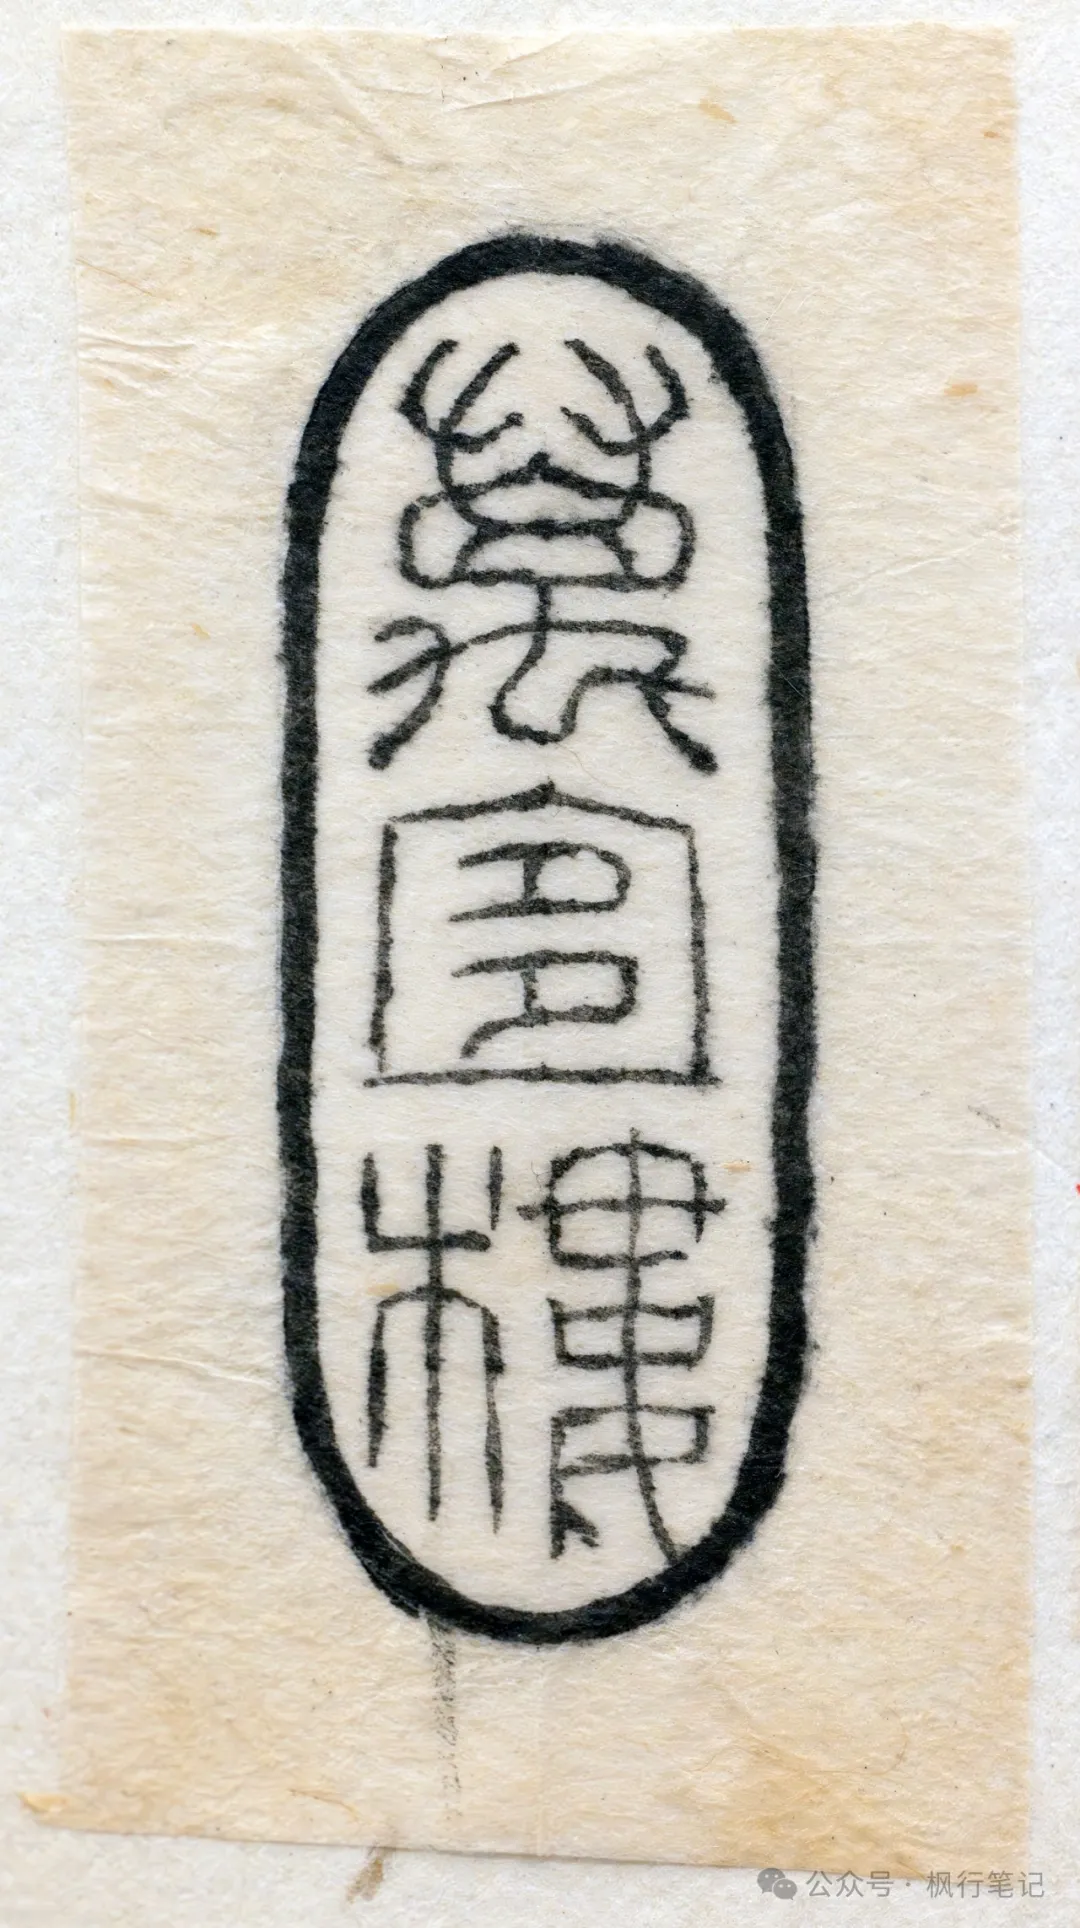 萬宜樓
公众号·枫行笔记